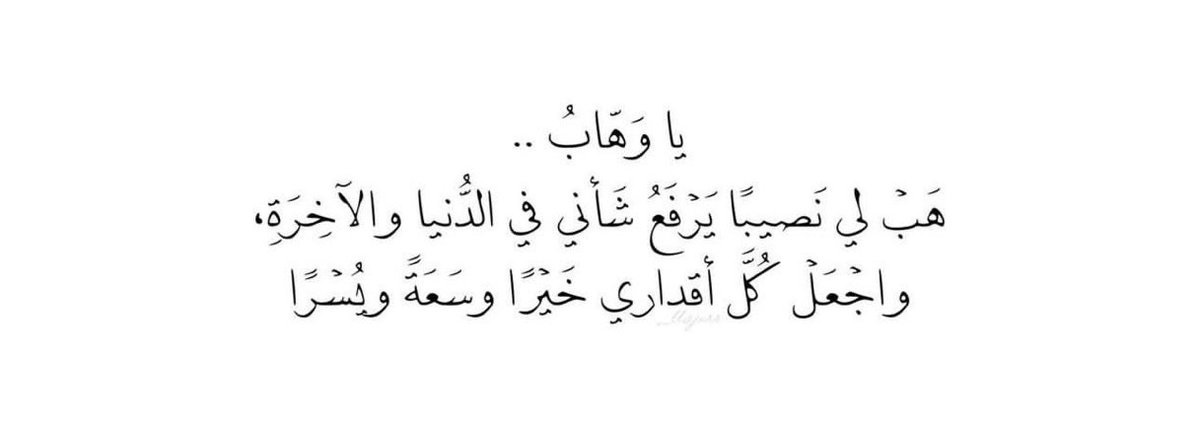 يا وَهّابُ ..
هَبْ لي نَصيبًا يَرْفَعُ شَأني في الدُّنيا والآخِرَةِ،
واجْعَلْ كُلَّ أقداري خَيْرًا وسَعَةً ويُسْرًا